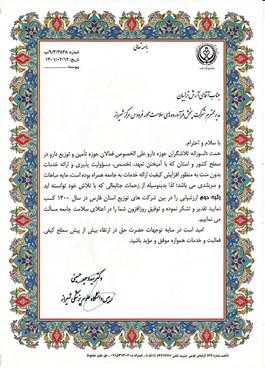 باسمه تعالی
شماره: ۹/۴/۴۸۳۸/ب
تاریخ: ۱۴۰۱/۰۲/۱۲
پیوست:
جناب آقای آرش ترابیان
مدیر محترم شرکت پخش فرآورده‌های سلامت محور فردوس مرکز شیراز
با سلام و احترام،
همت دلسوزانه تلاشگران حوزه دارو علی الخصوص فعالان حوزه تأمین و توزیع دارو در
سطح کشور و استان که با آمیختن تعهد، تخصص، مسؤولیت پذیری و ارائه خدمات
بدون منت به منظور افزایش کیفیت ارائه خدمات به جامعه همراه بوده است، مایه مباهات
و سربلندی می باشد؛ لذا بدینوسیله از زحمات جنابعالی که با تلاش خود توانسته اید
رتبه دوم ارزشیابی را در بین شرکت های توزیع استان فارس در سال ۱۴۰۰ کسب
نمایید تقدیر و تشکر نموده و توفیق روزافزون شما را در اعتلای سلامت جامعه مسألت
می نماییم.
امید است در سایه توجهات حضرت حق در ارتقاء بیش از پیش سطح کیفی
فعالیت و خدمات همواره موفق و مؤید باشید.
دکتر سید وحید حسینی
رئیس دانشگاه علوم پزشکی شیراز